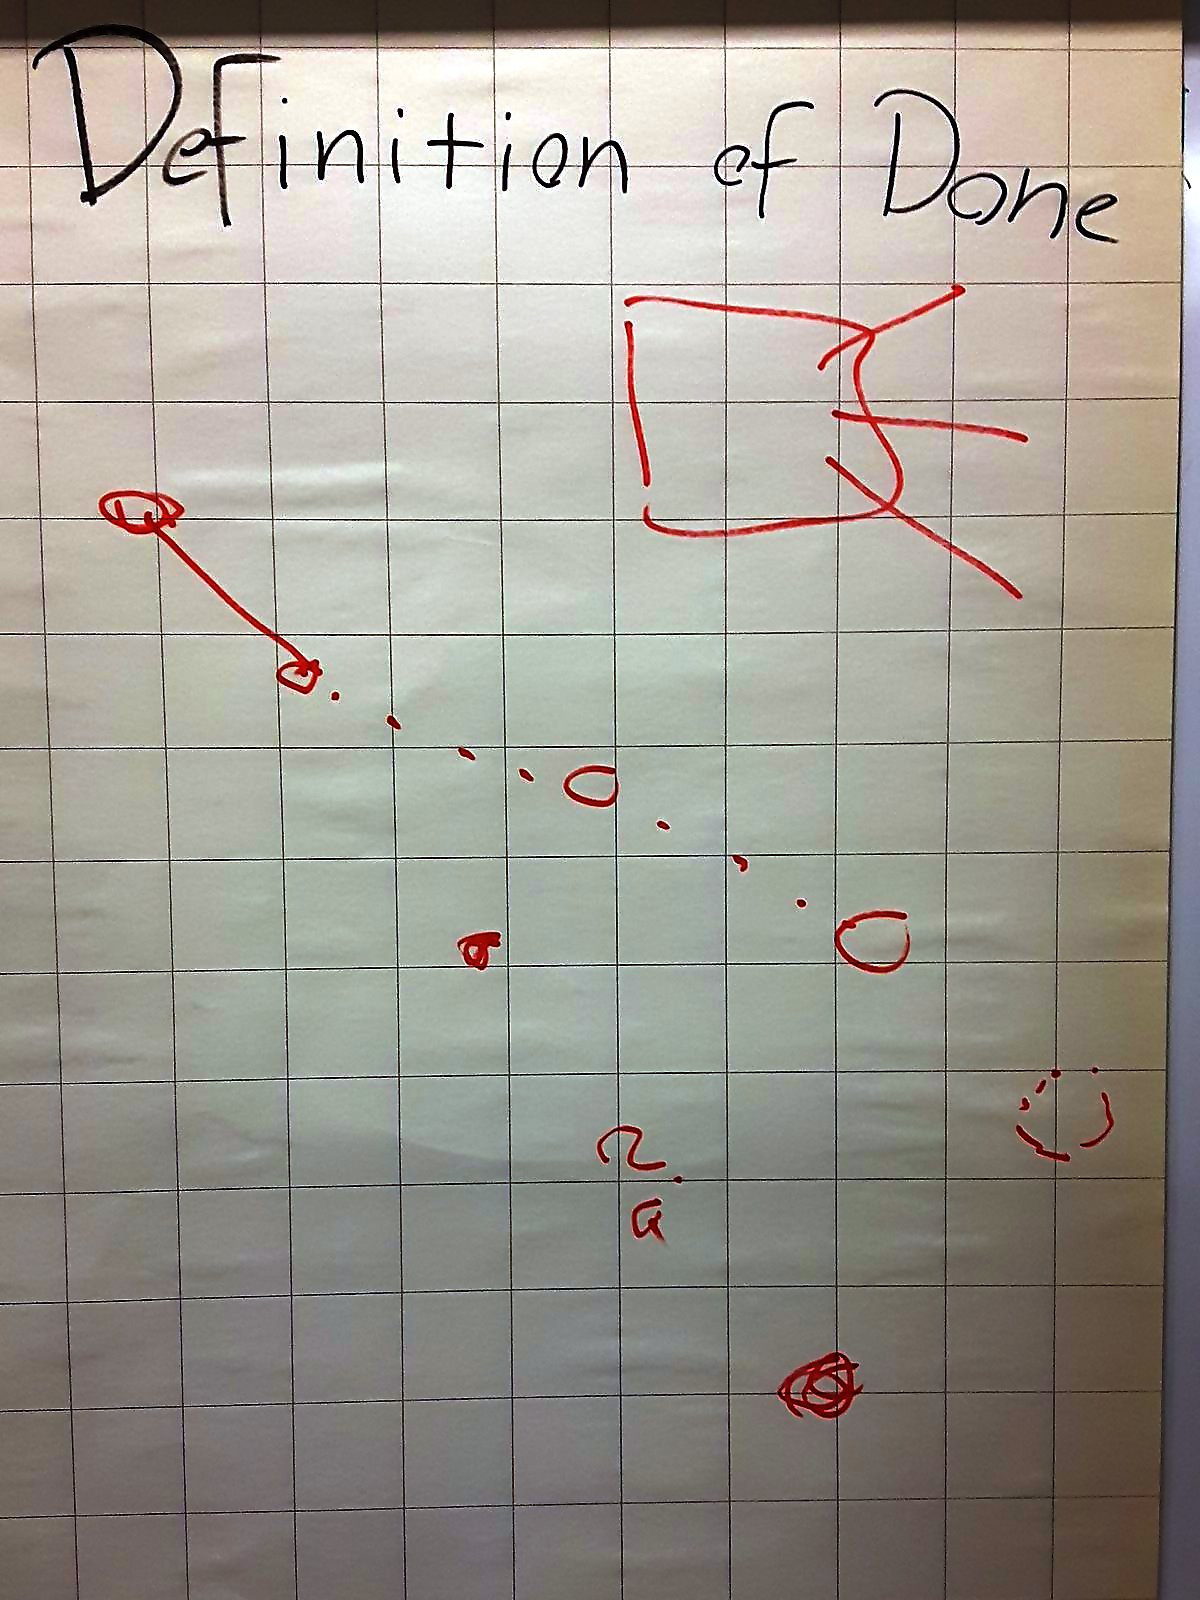 Definition of Done